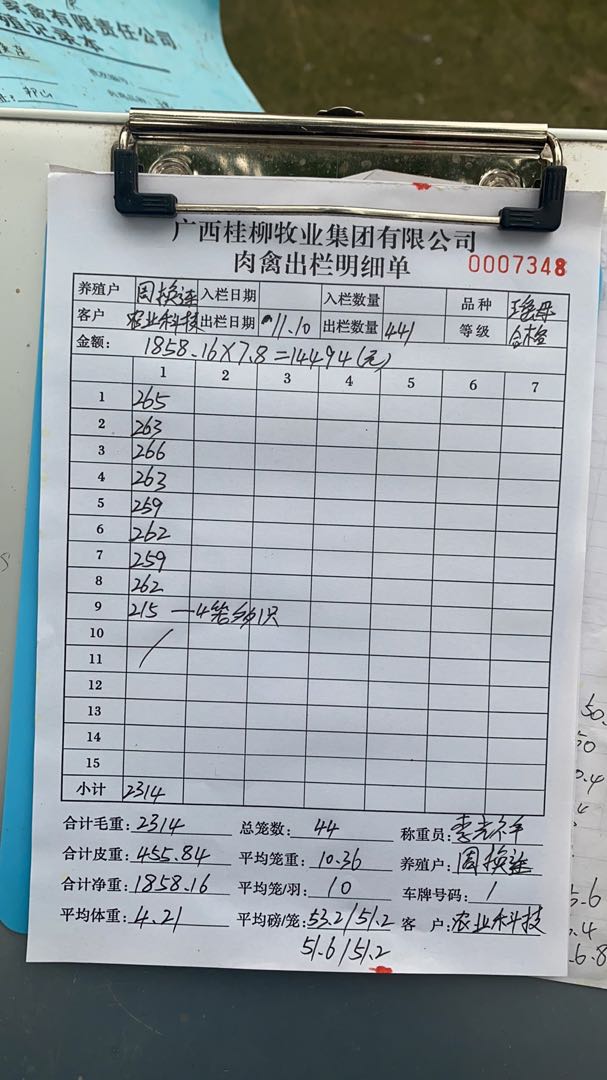 禽有限责任公司
记录本
广西桂柳牧业集团有限公司
肉禽出栏明细单 0007348
养殖户 周换连 入栏日期 入栏数量 品种 瑶母
客户 农业科技 出栏日期 11.10 出栏数量 441 等级 合格
金额: 1858.16×7.8=14494(元)
1 2 3 4 5 6 7
1 265
2 263
3 266
4 263
5 259
6 262
7 259
8 262
9 215 —4笼多1只
10 /
11
12
13
14
15
小计 2314
合计毛重: 2314 总笼数: 44 称重员:
合计皮重: 455.84 平均笼重: 10.36 养殖户: 周换连
合计净重: 1858.16 平均笼/羽: 10 车牌号码: /
平均体重: 4.21 平均磅/笼: 53.2/51.2 客 户: 农业科技
51.6/51.2